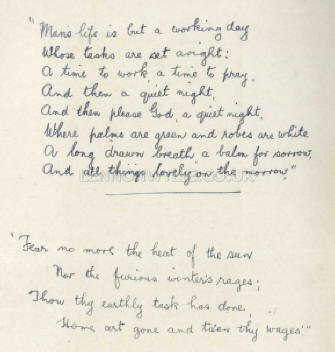 "Mans life is but a working day
Whose tasks are set aright:
A time to work, a time to pray,
And then a quiet night,
And then please God, a quiet night,
Where palms are green and robes are white
A long drawn breath, a balm for sorrow,
And all things lovely on the morrow"
'Fear no more the heat of the sun
Nor the furious winter's rages;
Thow thy earthly task has done,
Home art gone and ta'en thy wages.'"